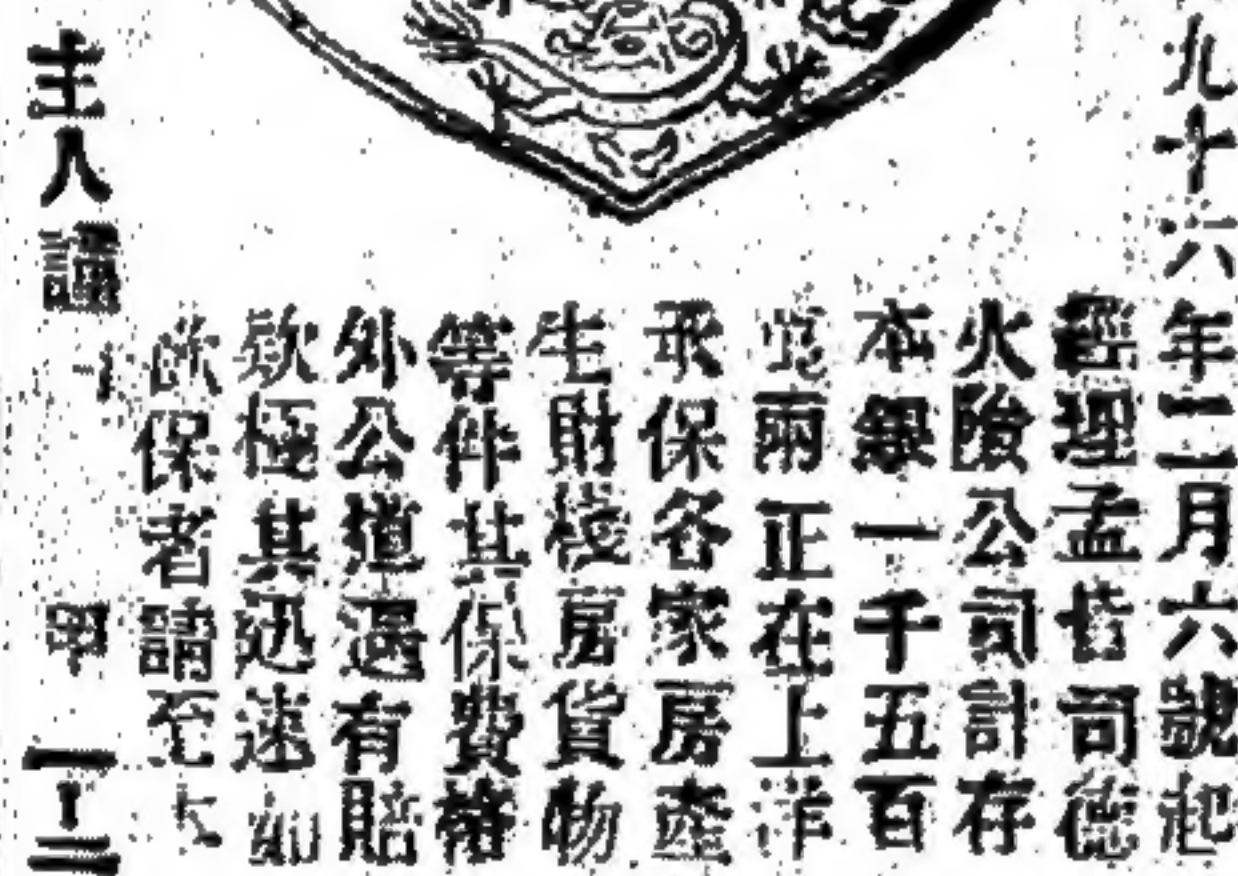 九十六年二月六號起
經理孟皆司德
火險公司計存
本銀一千五百
兩正在上洋
承保各家房產
生財棧房貨物
等件其保費格
外公道遇有賠
欵極其迅速如
欲保者請至
主人謹 甲 一二